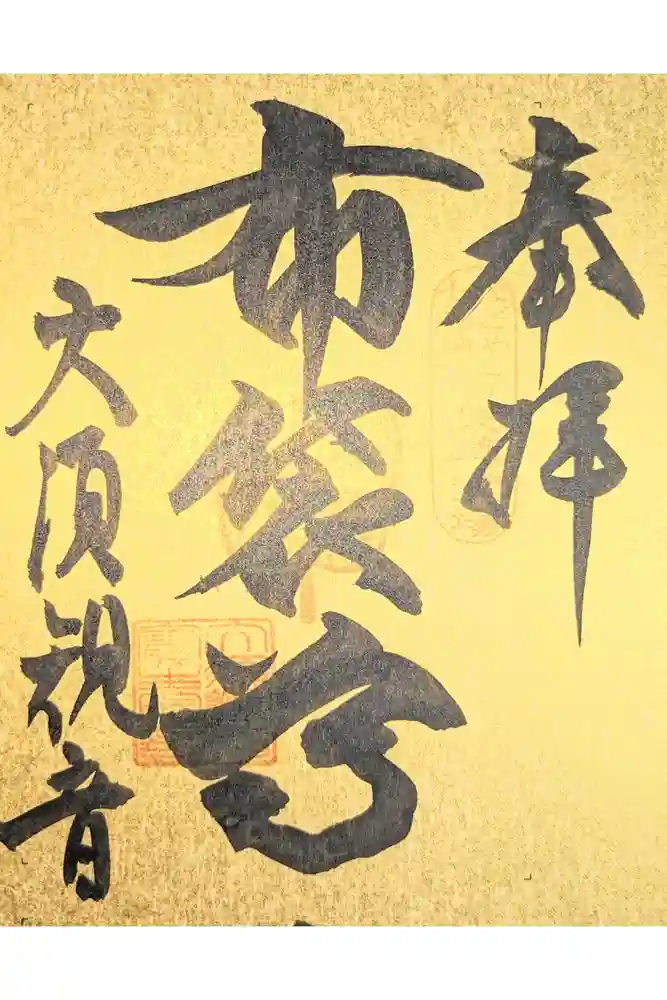 奉拝
布袋尊
大須観音